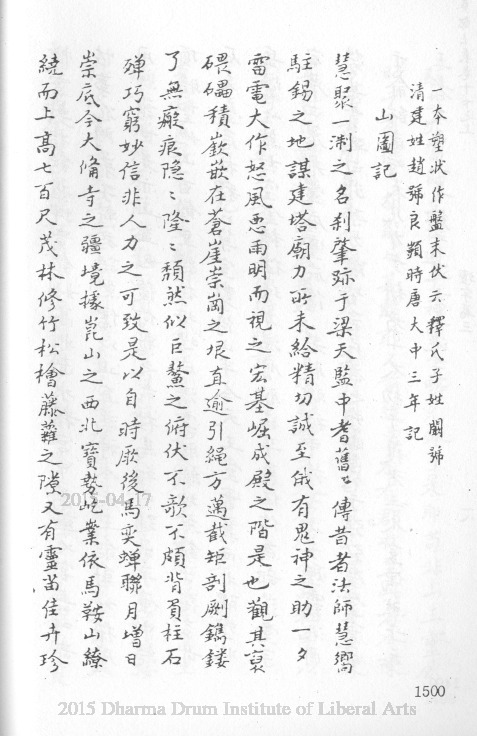 一本塑状作盤末伏云釋氏子姓闕號
清建姓趙號良顆時唐大中三年記
山圖記
慧聚一淛之名刹肇跡于梁天監中耆舊傳昔者法師慧嚮
駐錫之地謀建塔廟力所未給精切誠至俄有鬼神之助一夕
雷電大作怒風惡雨明而視之宏基崛成殿之階是也觀其裒
碨礧積嶔嵌在蒼崖崇崗之垠直逾引繩方邁截矩剖劂鐫鏤
了無瘢痕隐隐隆隆頹然似巨鰲之俯伏不欹不頗背負柱石
殫巧窮妙信非人力之可致是以自時厥後馬奕蟬聯月增日
崇底今大脩寺之疆境據崑山之西北寶勢屹業依馬鞍山繚
繞而上高七百尺茂林修竹松檜藤蘿之隙又有靈苗佳卉珍
2015-04-17
1500
2015 Dharma Drum Institute of Liberal Arts